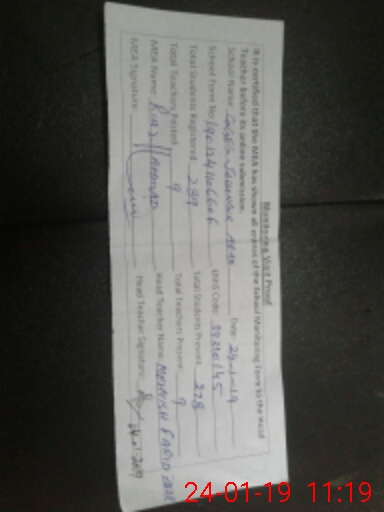 Monitoring Visit Proof
It is certified that the MEA has shown all entries of the School Monitoring Form to the Head
Teacher before its online submission.
School Name: Date: 24-1-19
School Form No: EMIS Code:
Total Students Registered: 289 Total Students Present: 278
Total Teachers Posted: 9 Total Teachers Present: 9
MEA Name: Riaz Ahmad Head Teacher Name: MEHWISH
MEA Signature: Head Teacher Signature:
24-01-19 11:19